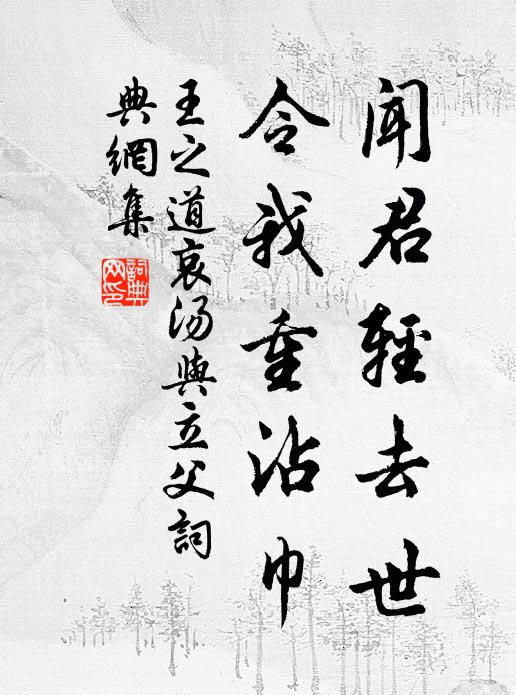 闻君轻去世
令我重沾巾
王之道哀汤与立父词
典网集
词典
网印